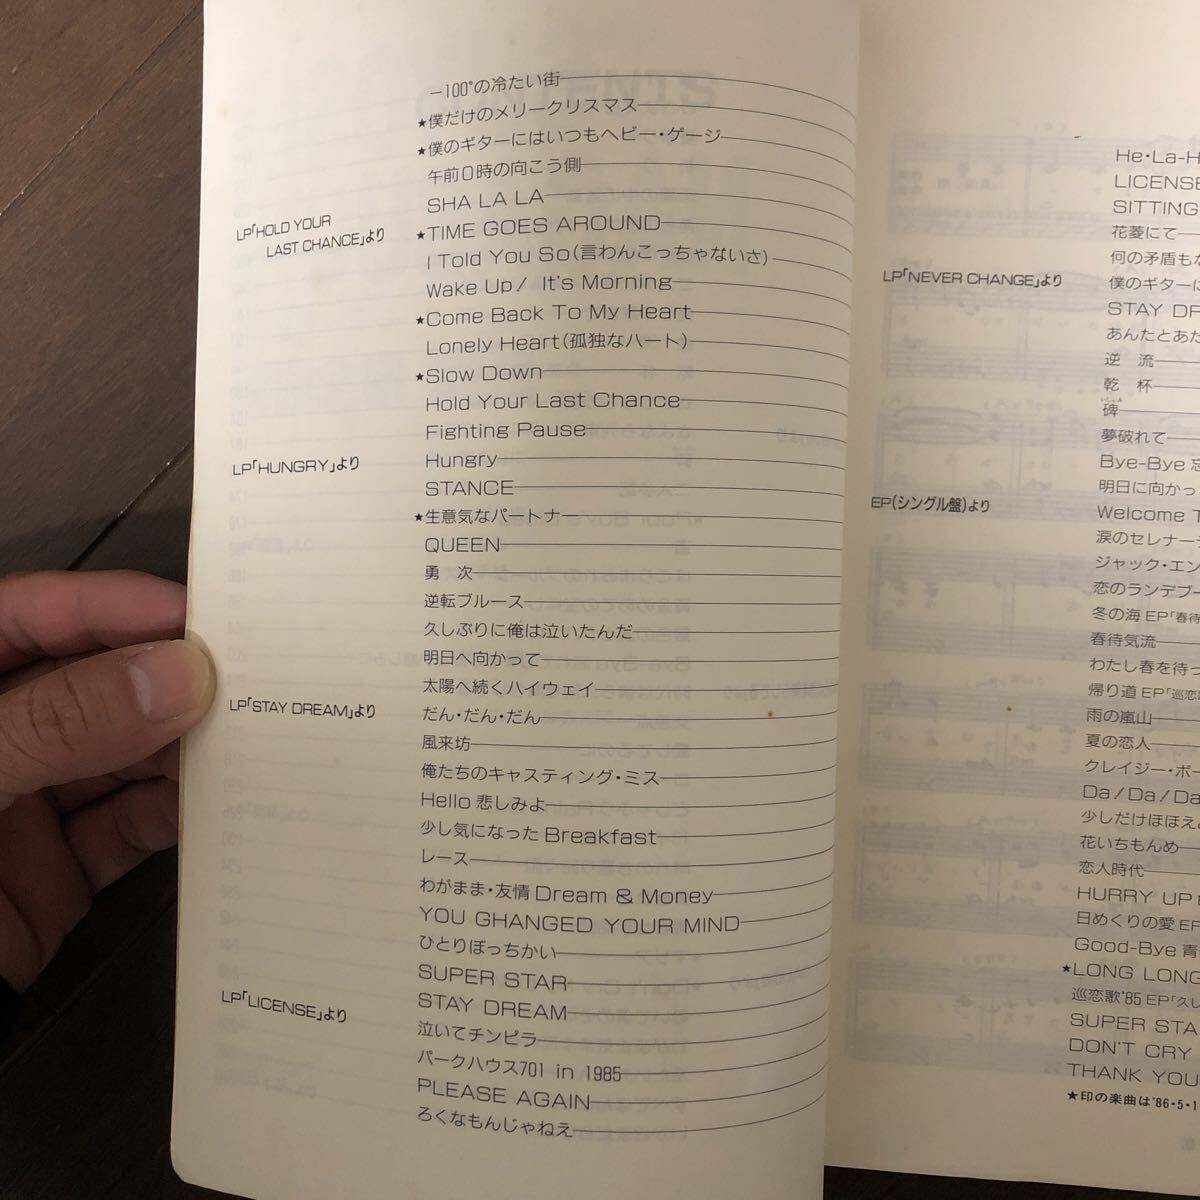 −100°の冷たい街
★僕だけのメリークリスマス
★僕のギターにはいつもヘビー・ゲージ
午前0時の向こう側
SHA LA LA
LP「HOLD YOUR
LAST CHANCE」より
★TIME GOES AROUND
I Told You So(言わんこっちゃないさ)
Wake Up/ It's Morning
★Come Back To My Heart
Lonely Heart(孤独なハート)
★Slow Down
Hold Your Last Chance
Fighting Pause
LP「HUNGRY」より
Hungry
STANCE
★生意気なパートナー
QUEEN
勇 次
逆転ブルース
久しぶりに俺は泣いたんだ
明日へ向かって
太陽へ続くハイウェイ
LP「STAY DREAM」より
だん・だん・だん
風来坊
俺たちのキャスティング・ミス
Hello 悲しみよ
少し気になった Breakfast
レース
わがまま・友情 Dream & Money
YOU GHANGED YOUR MIND
ひとりぼっちかい
SUPER STAR
LP「LICENSE」より
STAY DREAM
泣いてチンピラ
パークハウス701 in 1985
PLEASE AGAIN
ろくなもんじゃねえ
He・La-H
LICENSE
SITTING
花菱にて
何の矛盾もな
LP「NEVER CHANGE」より
僕のギターに
STAY DR
あんたとあた
逆 流
乾 杯
碑
夢破れて
Bye-Bye 忘
明日に向かっ
EP(シングル盤)より
Welcome T
涙のセレナーデ
ジャック・エン
恋のランデブー
冬の海 EP「春待
春待気流
わたし春を待っ
帰り道 EP「巡恋
雨の嵐山
夏の恋人
クレイジー・ボー
Da/Da/Da
少しだけほほえ
花いちもんめ
恋人時代
HURRY UP
日めくりの愛 EP
Good-Bye 青
★LONG LONG
巡恋歌'85 EP「久し
SUPER STA
DON'T CRY
THANK YOU
★印の楽曲は'86・5・1